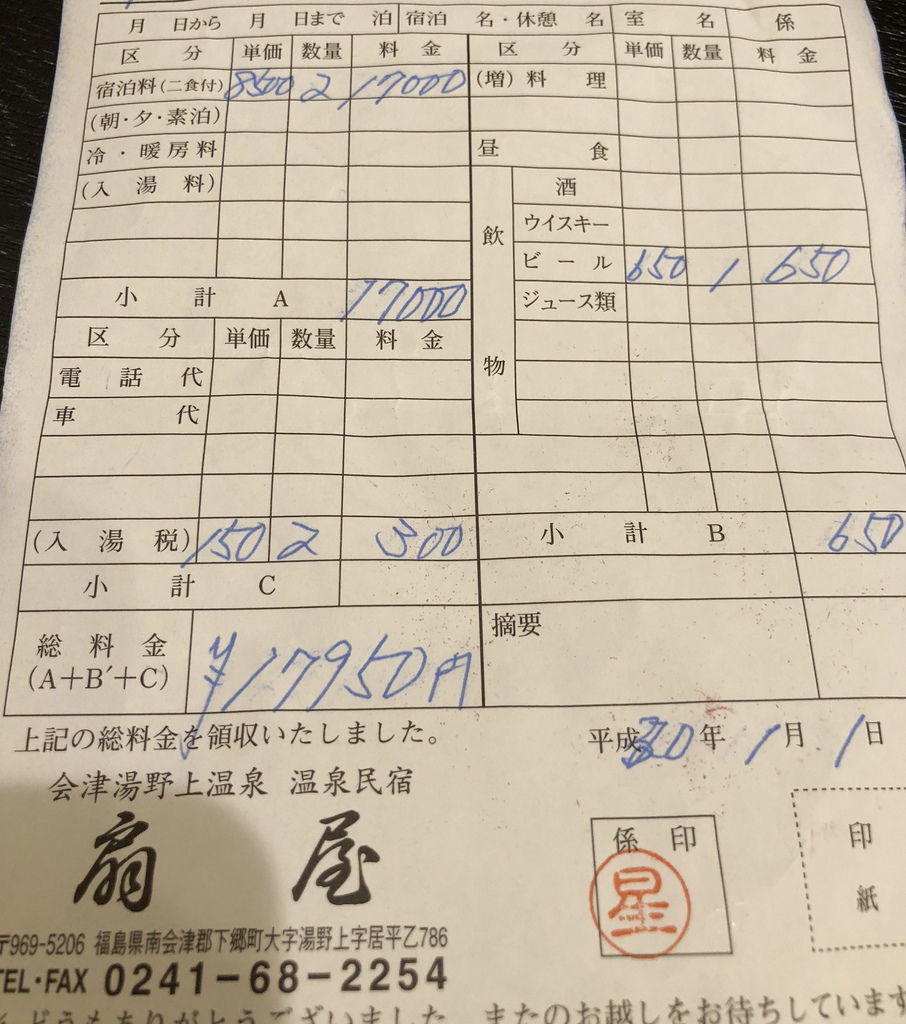 月 日から 月 日まで 泊 宿泊 名・休憩 名 室 名 係
区 分 単価 数量 料 金 区 分 単価 数量 料 金
宿泊料(二食付) 8500 2 17000 (増)料 理
(朝・夕・素泊)
冷・暖房料 昼 食
(入 湯 料) 飲物 酒
ウイスキー
ビール 650 1 650
小 計 A 17000 ジュース類
区 分 単価 数量 料 金
電 話 代
車 代
(入 湯 税) 150 2 300 小 計 B 650
小 計 C
総 料 金 (A+B´+C) ¥17950円 摘要
上記の総料金を領収いたしました。 平成30年 1月 1日
会津湯野上温泉 温泉民宿
扇 屋 係 印 星 印 紙
〒969-5206 福島県南会津郡下郷町大字湯野上字居平乙786
TEL・FAX 0241-68-2254
どうもありがとうございました またのお越しをお待ちしています